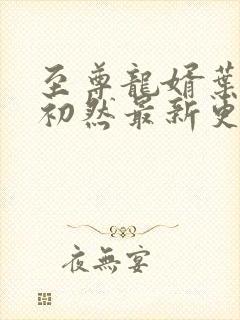 至尊龍婿葉
初然最新更
夜無宴